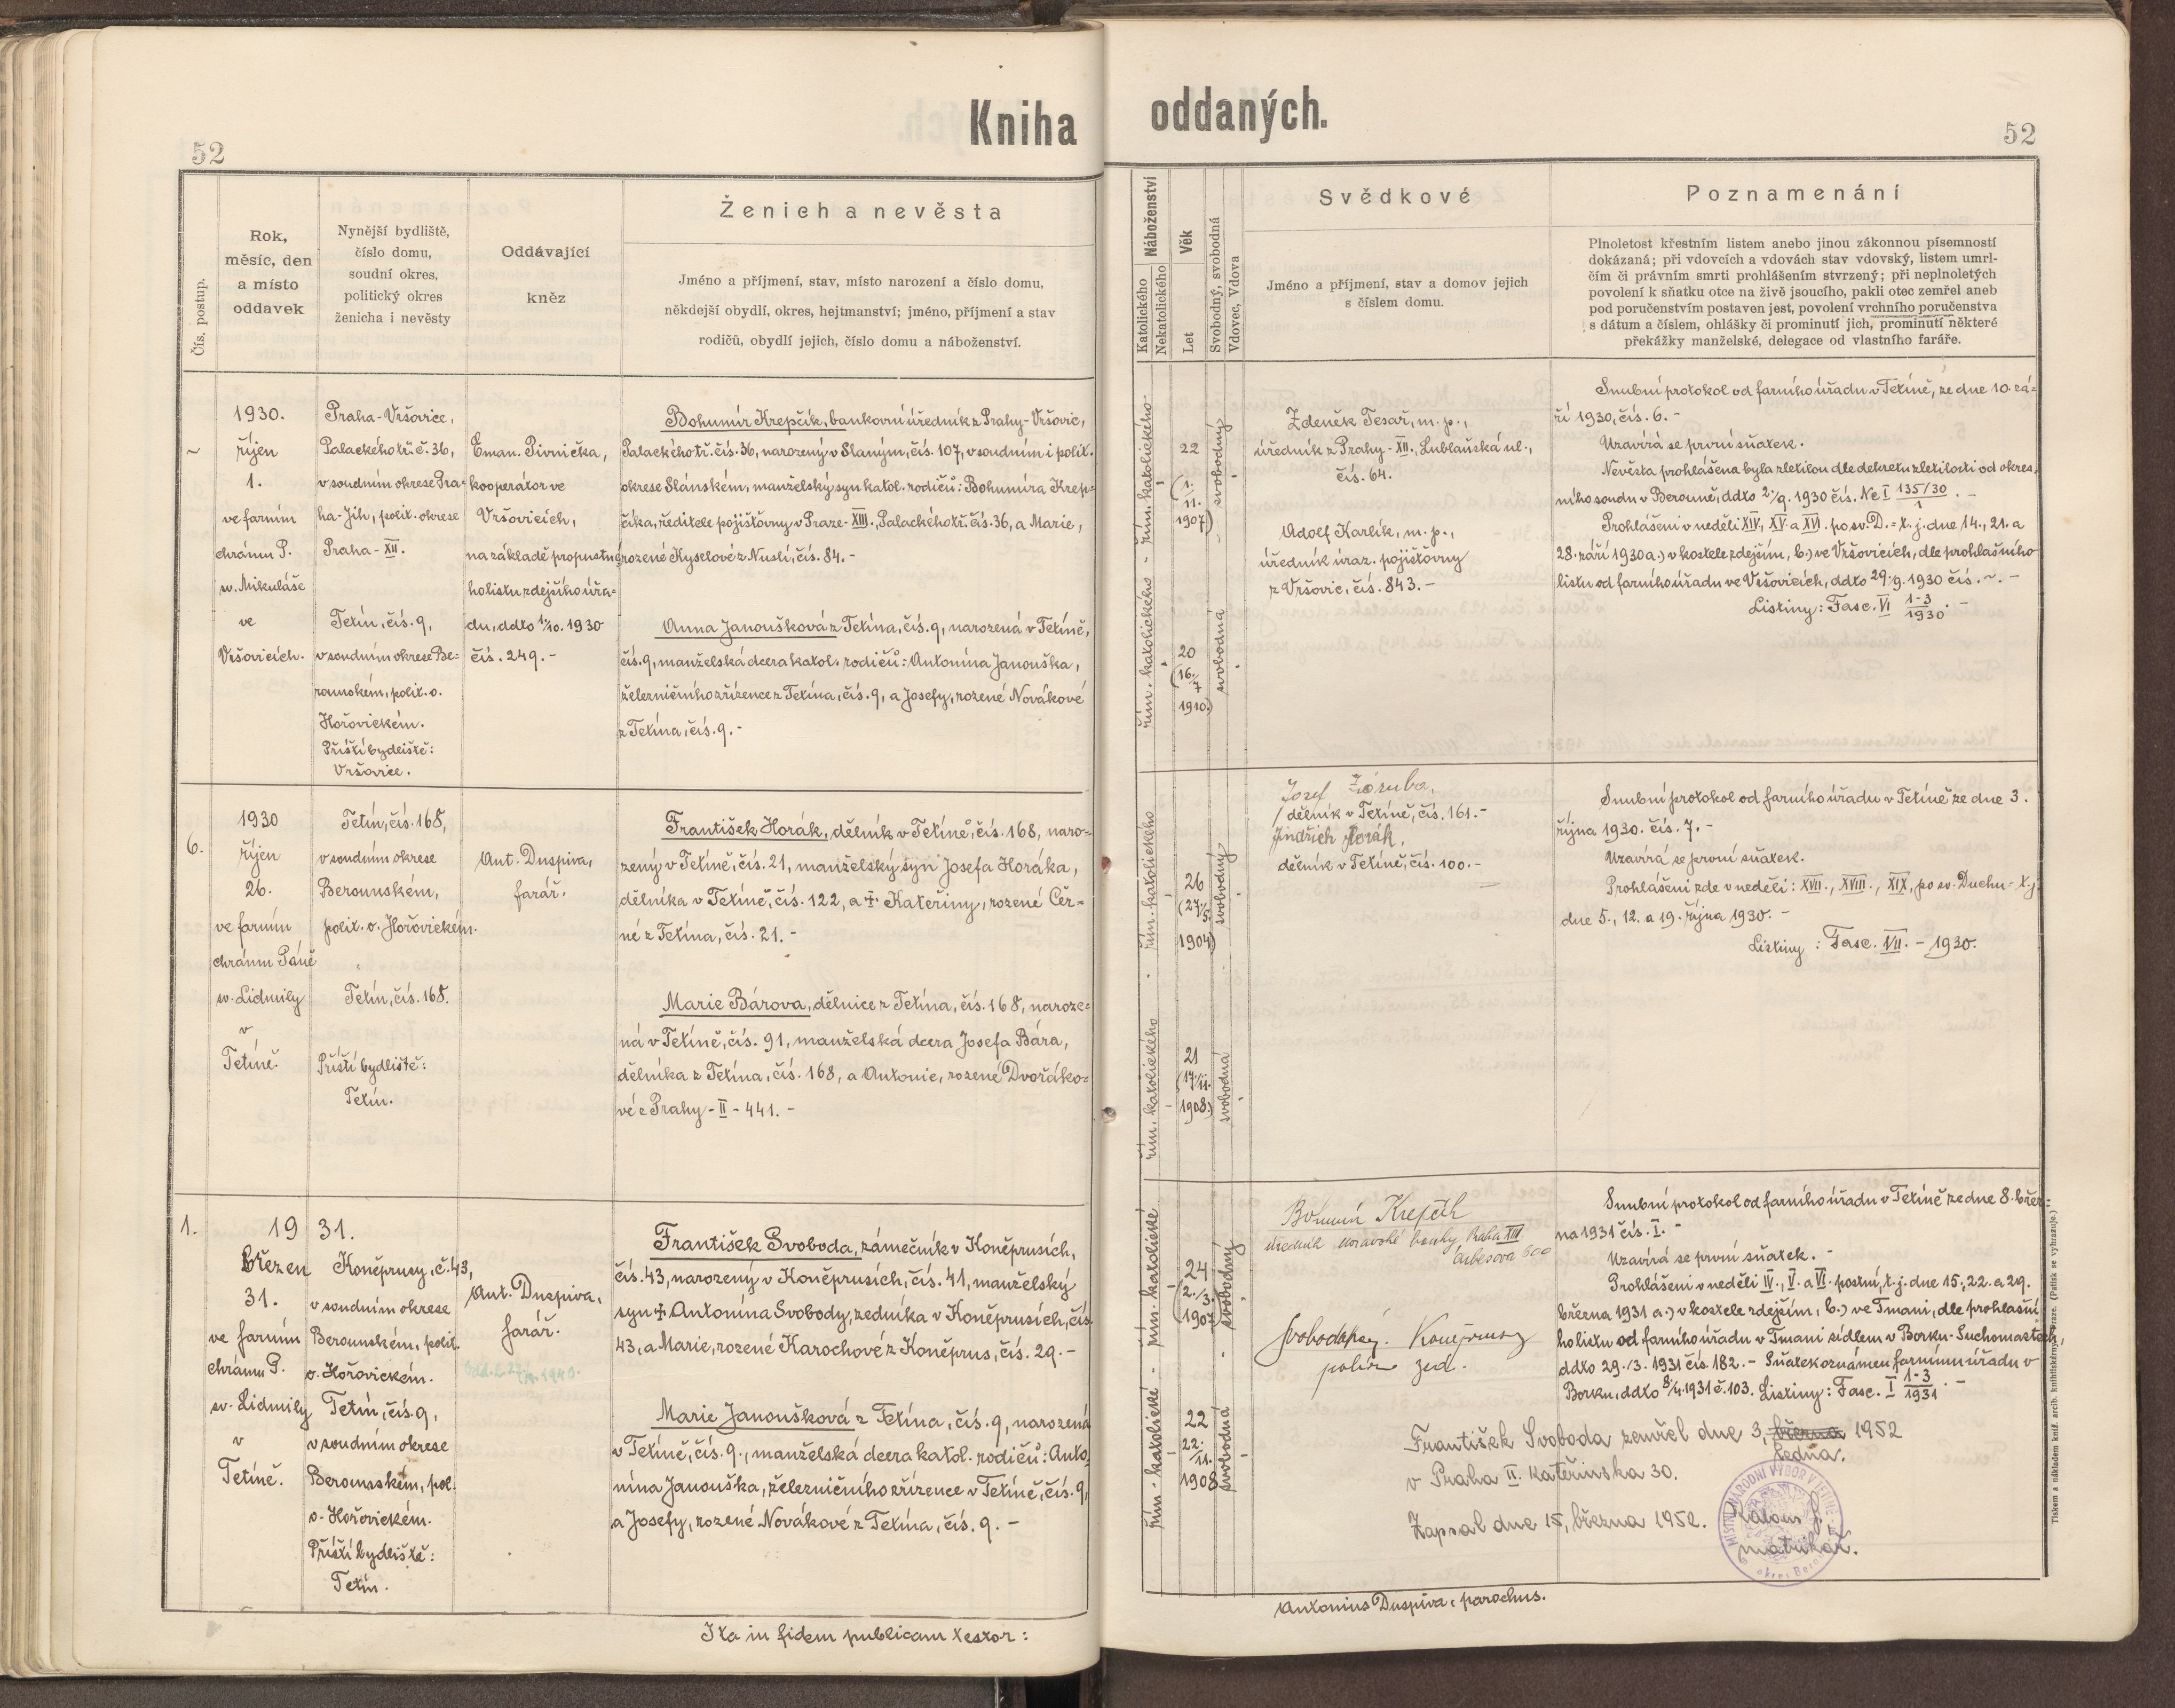 Kniha oddaných.
52
52
Čís. postup.
Rok,
měsíc, den
a místo
oddavek
Nynější bydliště,
číslo domu,
soudní okres,
politický okres
ženicha i nevěsty
Oddávající
kněz
Ženich a nevěsta
Jméno a příjmení, stav, místo narození a číslo domu,
někdejší obydlí, okres, hejtmanství; jméno, příjmení a stav
rodičů, obydlí jejich, číslo domu a náboženství.
Náboženství
Katolického
Nekatolického
Věk
Let
Svobodný, svobodná
Vdovec, Vdova
Svědkové
Jméno a příjmení, stav a domov jejich
s číslem domu.
Poznamenání
Plnoletost křestním listem anebo jinou zákonnou písemností
dokázaná; při vdovcích a vdovách stav vdovský, listem umrl-
čím či právním smrti prohlášením stvrzený; při neplnoletých
povolení k sňatku otce na živě jsoucího, pakli otec zemřel aneb
pod poručenstvím postaven jest, povolení vrchního poručenstva
s dátum a číslem, ohlášky či prominutí jich, prominutí některé
překážky manželské, delegace od vlastního faráře.
~
1930.
říjen
1.
ve farním
chrámu P.
sv. Mikuláše
ve
Vršovicích.
Praha-Vršovice,
Palackého tř. č. 36,
v soudním okrese Pra-
ha-Jih, polit. okrese
Praha-XII.
Tetín, čís. 9,
v soudním okrese Be=
rounském, polit. o.
Hořovickém.
Příští bydliště:
Vršovice.
Eman. Pivnička,
kooperátor ve
Vršovicích,
na základě propustné=
ho listu zdejšího úřa=
du, ddto 1/10. 1930
čís. 249.-
Bohumír Krepčík, bankovní úředník z Prahy-Vršovic,
Palackého tř. čís. 36, narozený v Slaným, čís. 107, v soudním i polit.
okrese Slánském, manželský syn katol. rodičů: Bohumíra Krep=
číka, ředitele pojišťovny v Praze-XIII., Palackého tř. čís. 36, a Marie,
rozené Kyselové z Nuslí, čís. 84.-
Anna Janoušková z Tetína, čís. 9, narozená v Tetíně,
čís. 9, manželská dcera katol. rodičů: Antonína Janouška,
železničního zřízence z Tetína, čís. 9, a Josefy, rozené Novákové
z Tetína, čís. 9.-
řím. katolického - řím. katolického
22
(1./
11.
1907)
svobodný
20
(16./
7
1910.)
svobodná
Zdeněk Tesař, m. p.,
úředník z Prahy-XII., Lublaňská ul.,
čís. 64.
Adolf Karlík, m. p.,
úředník úraz. pojišťovny
z Vršovic, čís. 843.-
Snubní protokol od farního úřadu v Tetíně, ze dne 10. zá=
ří 1930, čís. 6.-
Uzavírá se první sňatek.
Nevěsta prohlášena byla zletilou dle dekretu zletilosti od okres=
ního soudu v Berouně, ddto 2./9. 1930 čís. Nc I 135/30 / 1 .-
Prohlášeni v neděli XIV., XV. a XVI. po sv. D. = t. j. dne 14., 21. a
28. září 1930 a.) v kostele zdejším, b.) ve Vršovicích, dle prohlašního
listu od farního úřadu ve Vršovicích, ddto 29./9. 1930 čís. ~.-
Listiny: Fasc. VI 1-3/1930.-
6.
1930
říjen
26.
ve farním
chrámu Páně
sv. Lidmily
v
Tetíně.
Tetín, čís. 168,
v soudním okrese
Berounském,
polit. o. Hořovickém.
Tetín, čís. 168.
Příští bydliště:
Tetín.
Ant. Duspiva,
farář.
František Horák, dělník v Tetíně, čís. 168, naro=
zený v Tetíně, čís. 21, manželský syn Josefa Horáka,
dělníka v Tetíně, čís. 122, a †. Kateřiny, rozené Čer=
né z Tetína, čís. 21.-
Marie Bárova, dělnice z Tetína, čís. 168, naroze=
ná v Tetíně, čís. 91, manželská dcera Josefa Bára,
dělníka z Tetína, čís. 168, a Antonie, rozené Dvořáko=
vé z Prahy-II-441.-
řím. katolického - řím. katolického
26
(27./
5.
1904)
svobodný
21
(17./
11.
1908)
svobodná
Josef Záruba,
dělník v Tetíně, čís. 161.-
Jindřich Horák,
dělník v Tetíně, čís. 100.-
Snubní protokol od farního úřadu v Tetíně ze dne 3.
října 1930. čís. 7.-
Uzavírá se první sňatek.
Prohlášeni zde v neděli: XVII., XVIII., XIX., po sv. Duchu - t. j.
dne 5., 12. a 19. října 1930.-
Listiny: Fasc. VII.-1930.
1.
19 31.
Březen
31.
ve farním
chrámu P.
sv. Lidmily
v
Tetíně.
Koněprusy, č. 43,
v soudním okrese
Berounském, polit.
o. Hořovickém.
Tetín, čís. 9,
v soudním okrese
Berounském, pol.
o. Hořovickém.
Příští bydliště:
Tetín.
Ant. Duspiva,
farář.
František Svoboda, zámečník v Koněprusích,
čís. 43, narozený v Koněprusích, čís. 41, manželský
syn †. Antonína Svobody, zedníka v Koněprusích, čís.
43, a Marie, rozené Karochové z Koněprus, čís. 29.-
Marie Janoušková z Tetína, čís. 9, narozená
v Tetíně, čís. 9., manželská dcera katol. rodičů: Anto
nína Janouška, železničního zřízence v Tetíně, čís. 9,
a Josefy, rozené Novákové z Tetína, čís. 9.-
řím. katolické - řím. katolické
24
(2./3.
1907
svobodný
22
22./
11.
1908
svobodná
Bohumír Krepčík
úředník Moravské banky Praha XIII
Arbesova 600
Svoboda Koněprusy
polír zed.
Snubní protokol od farního úřadu v Tetíně ze dne 8. břez=
na 1931 čís. I.-
Uzavírá se první sňatek.-
Prohlášeni v neděli IV., V. a VI. postní, t. j. dne 15., 22. a 29.
března 1931 a.) v kostele zdejším, b.) ve Tmani, dle prohlašní
ho listu od farního úřadu v Tmani sídlem v Borku-Suchomastech,
ddto 29./3. 1931 čís. 182.- Sňatek oznámen farnímu úřadu v
Borku, ddto 8/4. 1931 č. 103. Listiny: Fasc. I 1-3/1931.-
František Svoboda zemřel dne 3. března 1952
ledna.
v Praha II. Kateřinska 30.
Zapsal dne 15, března 1952.
matrikář.
MÍSTNÍ NÁRODNÍ VÝBOR V TETÍNĚ
okres Beroun
Ita in fidem publicam testor:
Antonius Duspiva, parochus.
Tiskem a nákladem kníž. arcib. knihtiskárny v Praze. (Patisk se vyhrazuje.)